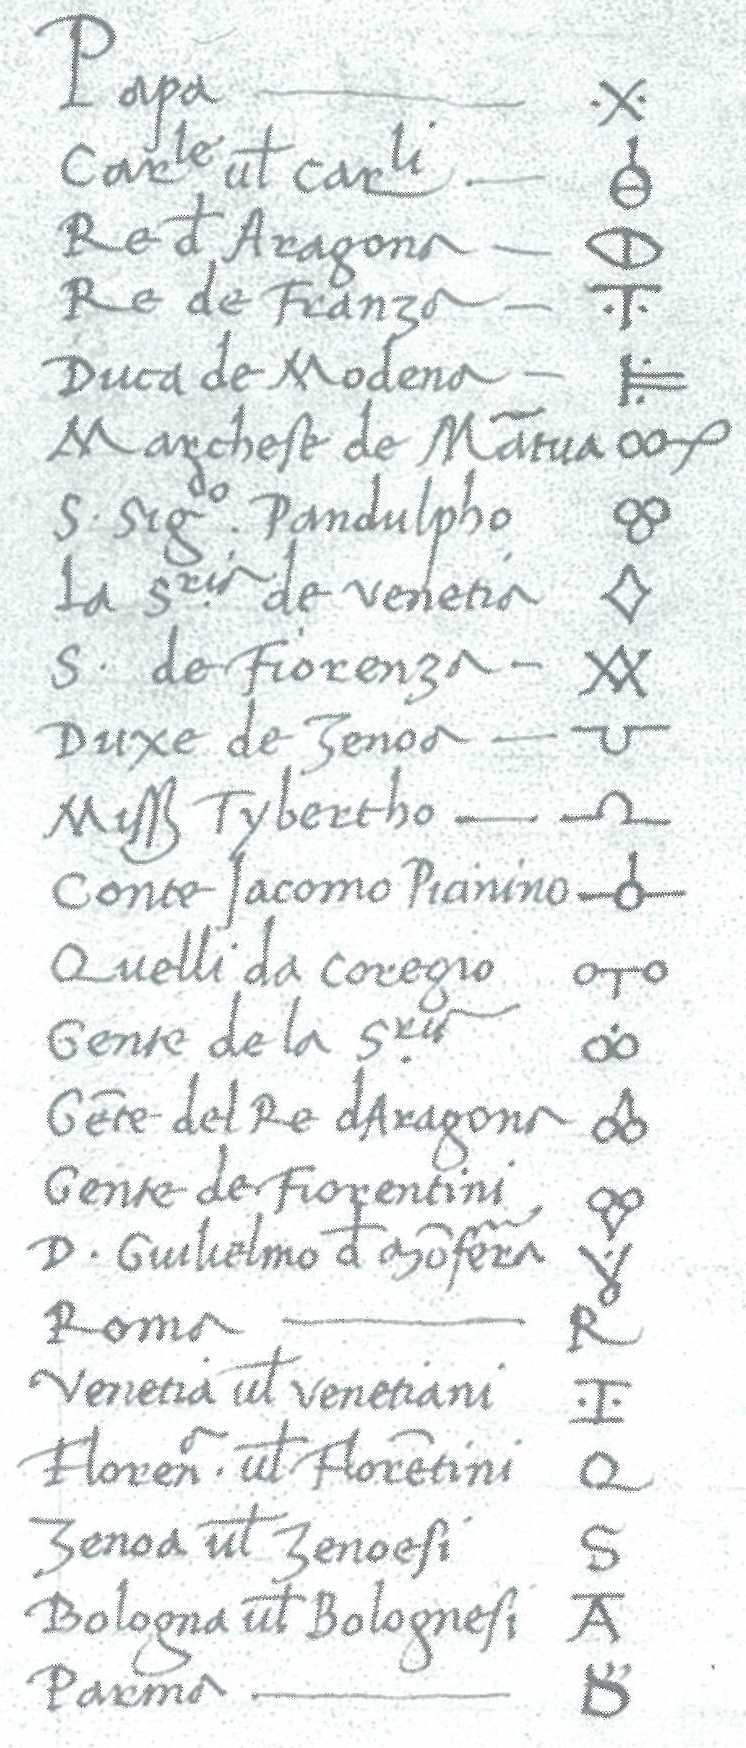 Papa
Car^le ut^ car^li
Re d' Aragona
Re de Franza
Duca de Modena
Marchese de Mātua
S. Sig^do. Pandulpho
La S^ria de Venetia
S. de Fiorenza
Duxe de Zenoa
Miss Tybertho
Conte Jacomo Picinino
Quelli da Coregio
Gente de la S^ria
Gēte del Re d Aragona
Gente de Fiorentini
D. Guilielmo d
Roma R
Venetia ut^ venetiani
Floren^a. ut^ Florētini
Zenoa ut^ Zenoesi S
Bologna ut^ Bolognesi
Parma